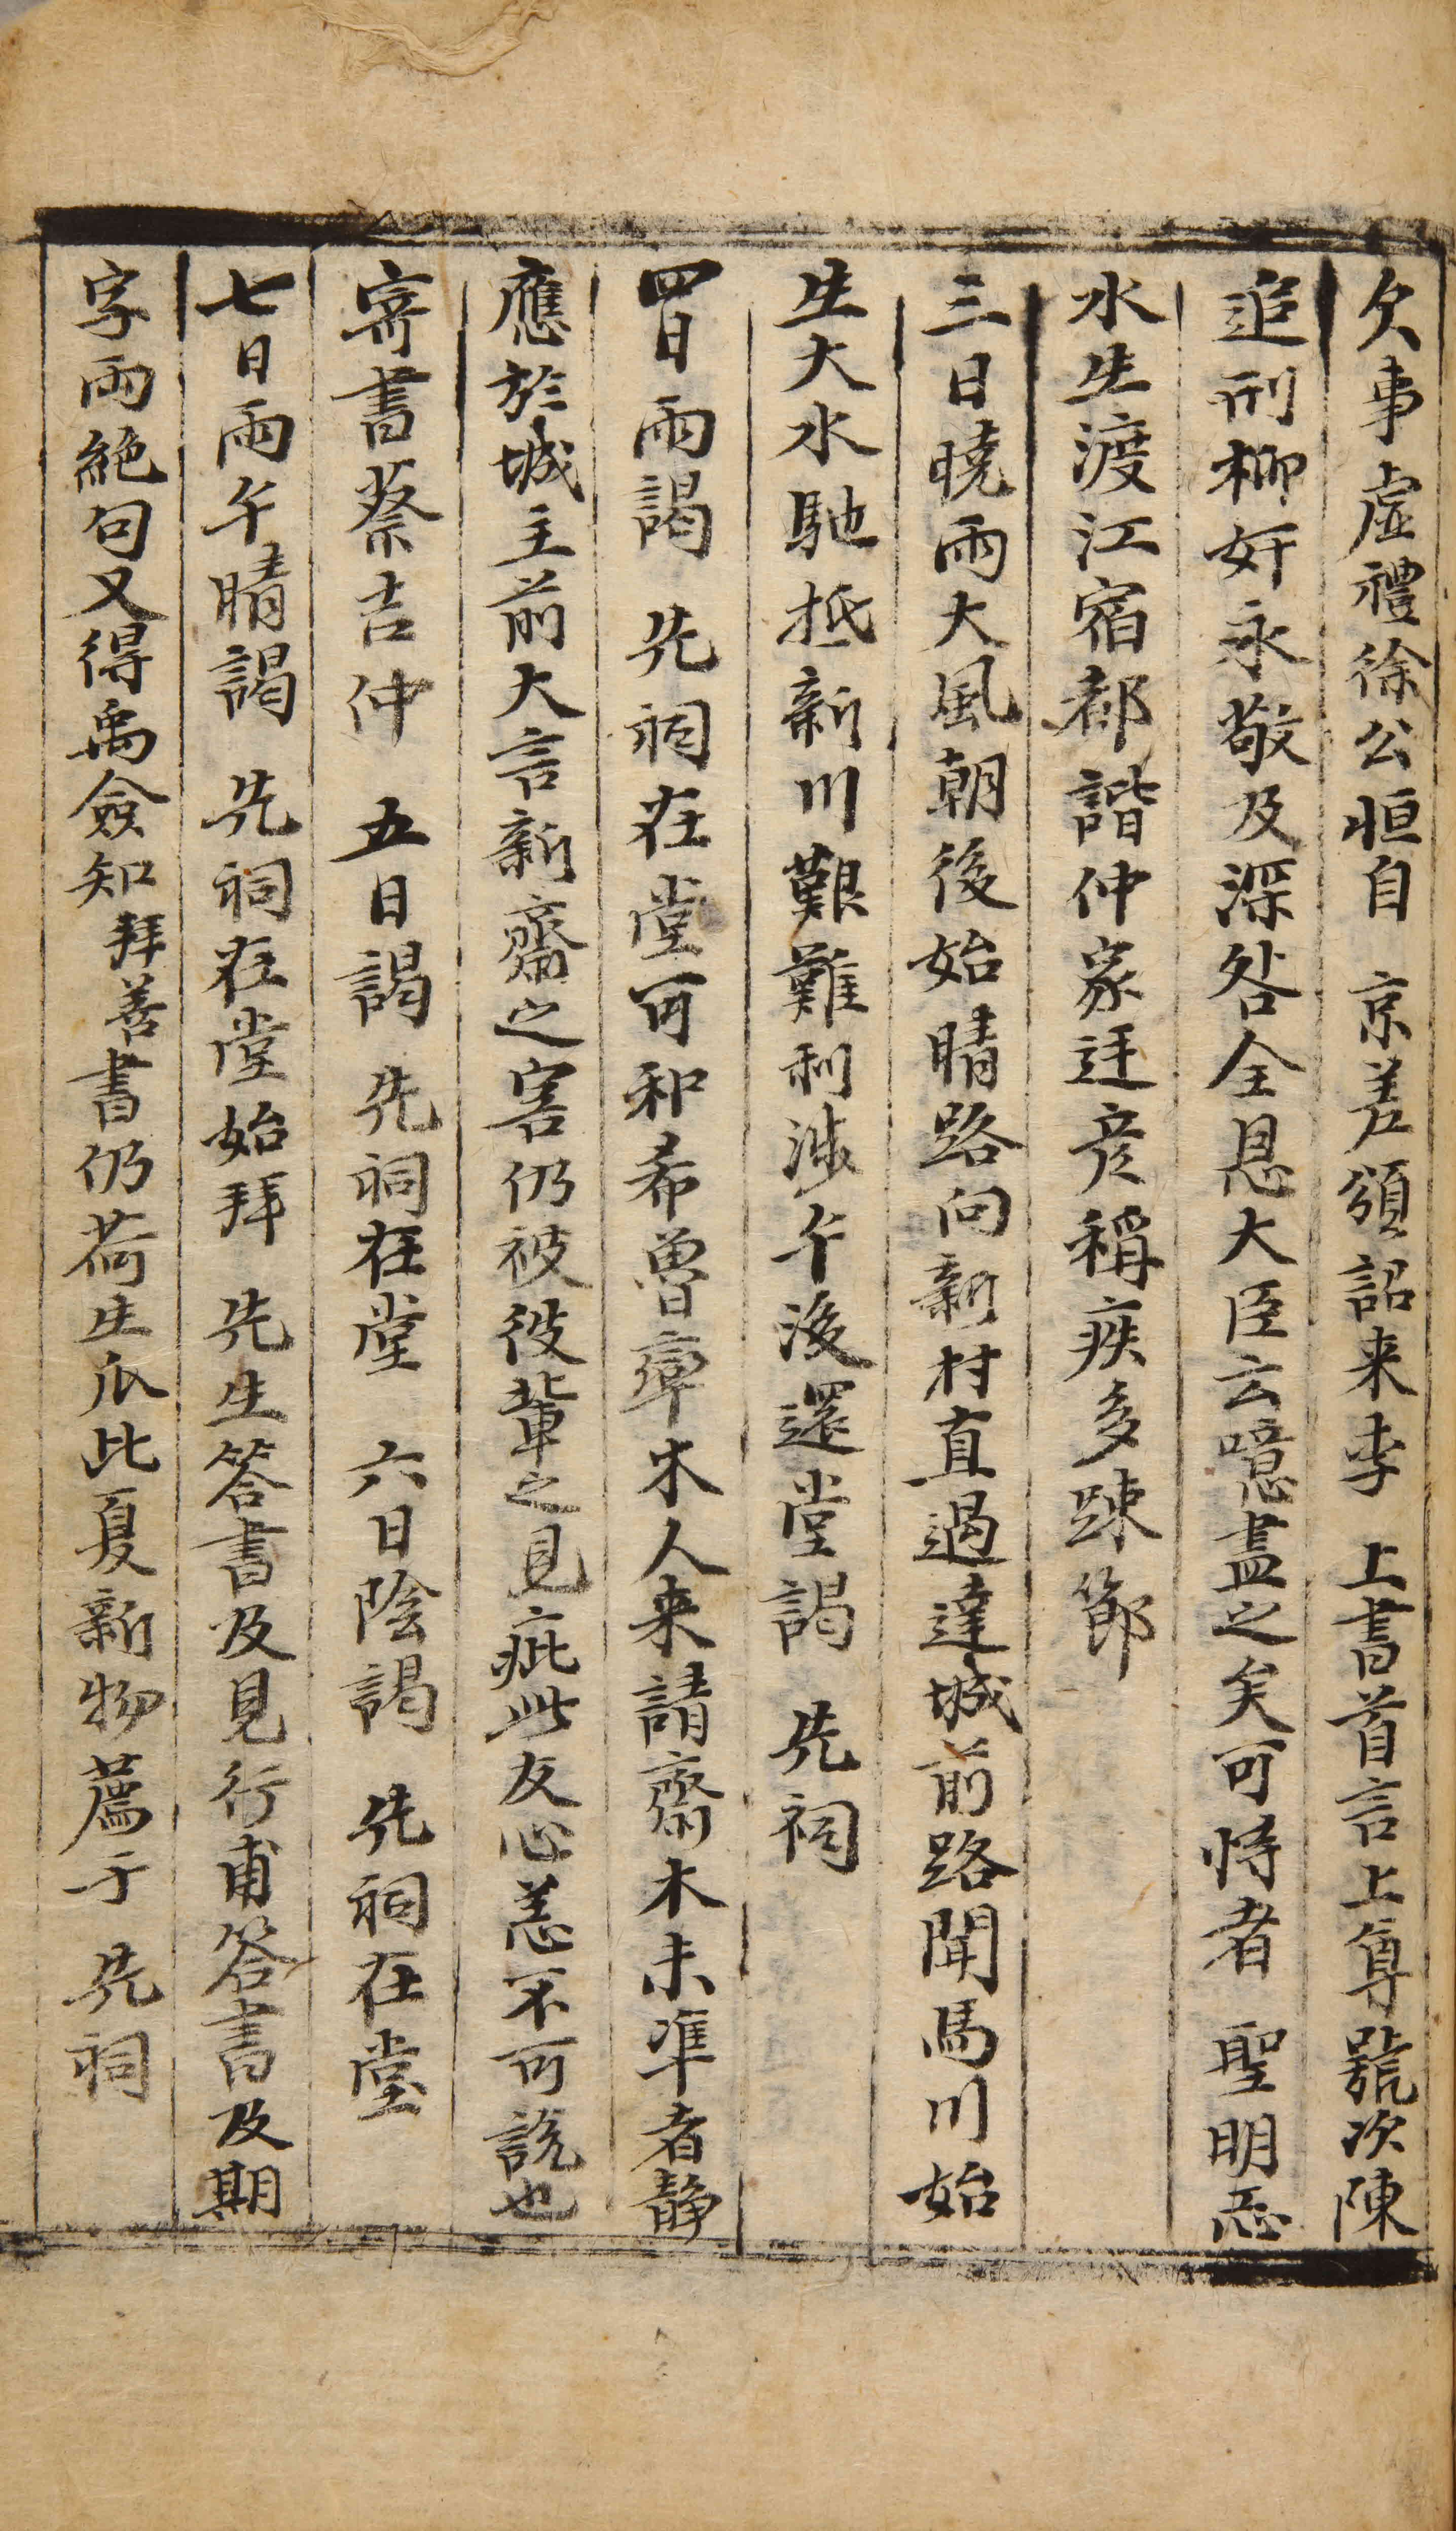 久事虛禮徐公恒自 京差頒詔来李 上書首言上尊號次陳
追刑柳奸永敬及深咎全恩大臣云噫盡之矣可恃者 聖明恐
水生渡江宿都諧仲家廷彦稱疾多踈節
三日曉雨大風朝後始晴路向新村直過達城前路聞馬川始
生大水馳抵新川艱難利涉午後還堂謁 先祠
四日雨謁 先祠在堂可和希魯牽木人来請齋木未準者靜
應於城主前大言新齋之害仍被彼輩之見疵此友心恙不可說也
寄書蔡吉仲 五日謁 先祠在堂 六日陰謁 先祠在堂
七日雨午晴謁 先祠在堂始拜 先生答書及見行甫答書及期
字兩絶句又得禹僉知拜善書仍荷生瓜此夏新物薦于 先祠